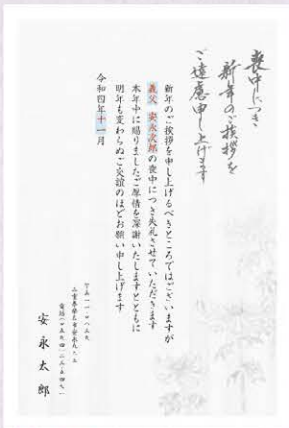 喪中につき
新年のご挨拶を
ご遠慮申し上げます
新年のご挨拶を申し上げるべきところではございますが
義父 安永次郎の喪中につき失礼させていただきます
本年中に賜りましたご厚情を深謝いたしますとともに
明年も変わらぬご交誼のほどお願い申し上げます
令和四年十一月
安永太郎